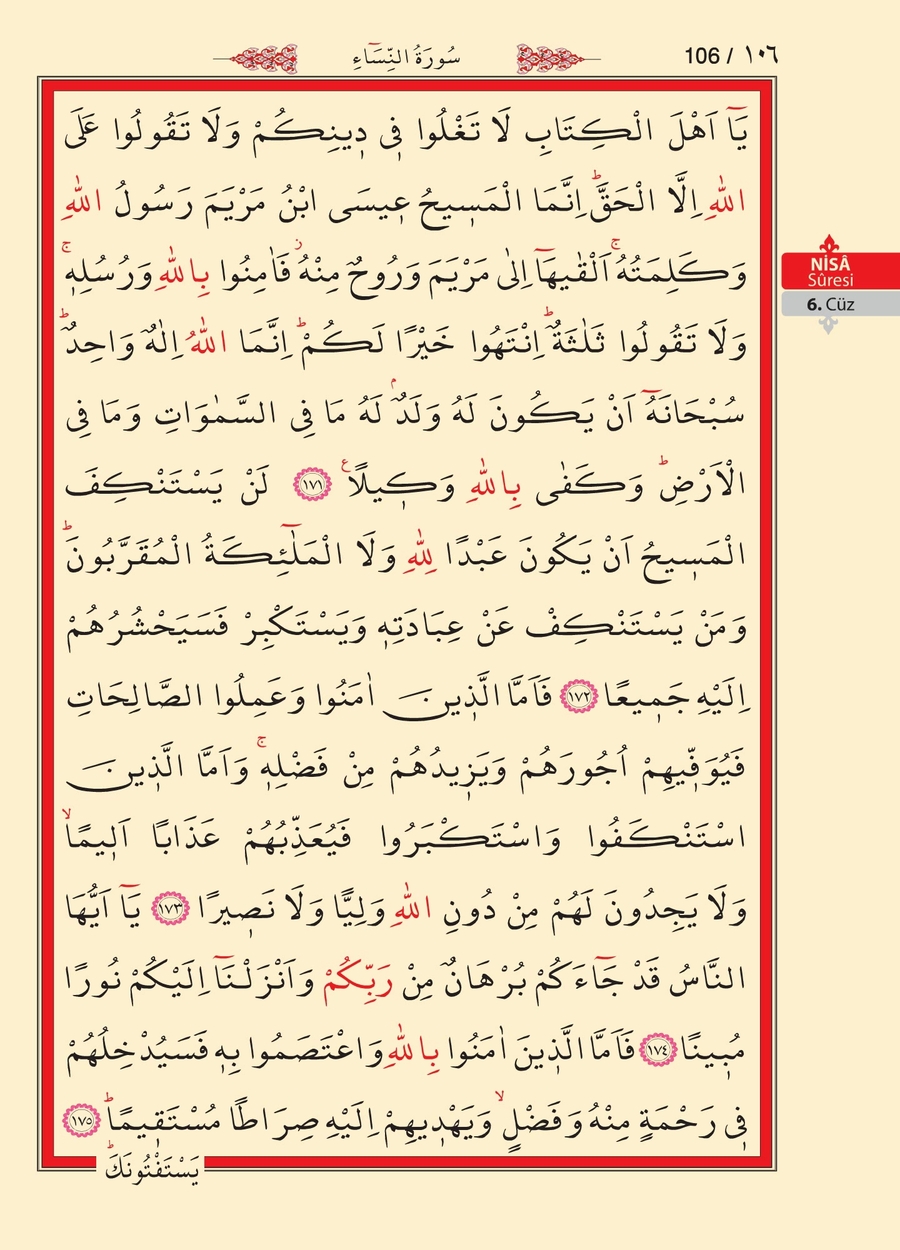 106 / ١٠٦
سُورَةُ النِّسَٓاءِ
يَٓا اَهْلَ الْكِتَابِ لَا تَغْلُوا فٖي دٖينِكُمْ وَلَا تَقُولُوا عَلَى
اللّٰهِ اِلَّا الْحَقَّؕ اِنَّمَا الْمَسٖيحُ عٖيسَى ابْنُ مَرْيَمَ رَسُولُ اللّٰهِ
وَكَلِمَتُهُۚ اَلْقٰيهَٓا اِلٰى مَرْيَمَ وَرُوحٌ مِنْهُؗ فَاٰمِنُوا بِاللّٰهِ وَرُسُلِهٖۚ
وَلَا تَقُولُوا ثَلٰثَةٌؕ اِنْتَهُوا خَيْرًا لَكُمْؕ اِنَّمَا اللّٰهُ اِلٰهٌ وَاحِدٌؕ
سُبْحَانَهُٓ اَنْ يَكُونَ لَهُ وَلَدٌۢ لَهُ مَا فِي السَّمٰوَاتِ وَمَا فِي
الْاَرْضِؕ وَكَفٰى بِاللّٰهِ وَكٖيلًاࣖ ﴿١٧١﴾ لَنْ يَسْتَنْكِفَ
الْمَسٖيحُ اَنْ يَكُونَ عَبْدًا لِلّٰهِ وَلَا الْمَلٰٓئِكَةُ الْمُقَرَّبُونَؕ
وَمَنْ يَسْتَنْكِفْ عَنْ عِبَادَتِهٖ وَيَسْتَكْبِرْ فَسَيَحْشُرُهُمْ
اِلَيْهِ جَمٖيعًا ﴿١٧٢﴾ فَاَمَّا الَّذٖينَ اٰمَنُوا وَعَمِلُوا الصَّالِحَاتِ
فَيُوَفّٖيهِمْ اُجُورَهُمْ وَيَزٖيدُهُمْ مِنْ فَضْلِهٖۚ وَاَمَّا الَّذٖينَ
اسْتَنْكَفُوا وَاسْتَكْبَرُوا فَيُعَذِّبُهُمْ عَذَابًا اَلٖيمًاۙ
وَلَا يَجِدُونَ لَهُمْ مِنْ دُونِ اللّٰهِ وَلِيًّا وَلَا نَصٖيرًا ﴿١٧٣﴾ يَٓا اَيُّهَا
النَّاسُ قَدْ جَٓاءَكُمْ بُرْهَانٌ مِنْ رَبِّكُمْ وَاَنْزَلْنَٓا اِلَيْكُمْ نُورًا
مُبٖينًا ﴿١٧٤﴾ فَاَمَّا الَّذٖينَ اٰمَنُوا بِاللّٰهِ وَاعْتَصَمُوا بِهٖ فَسَيُدْخِلُهُمْ
فٖي رَحْمَةٍ مِنْهُ وَفَضْلٍۙ وَيَهْدٖيهِمْ اِلَيْهِ صِرَاطًا مُسْتَقٖيمًاؕ ﴿١٧٥﴾
يَسْتَفْتُونَكَؕ
NİSÂ
Sûresi
6. Cüz